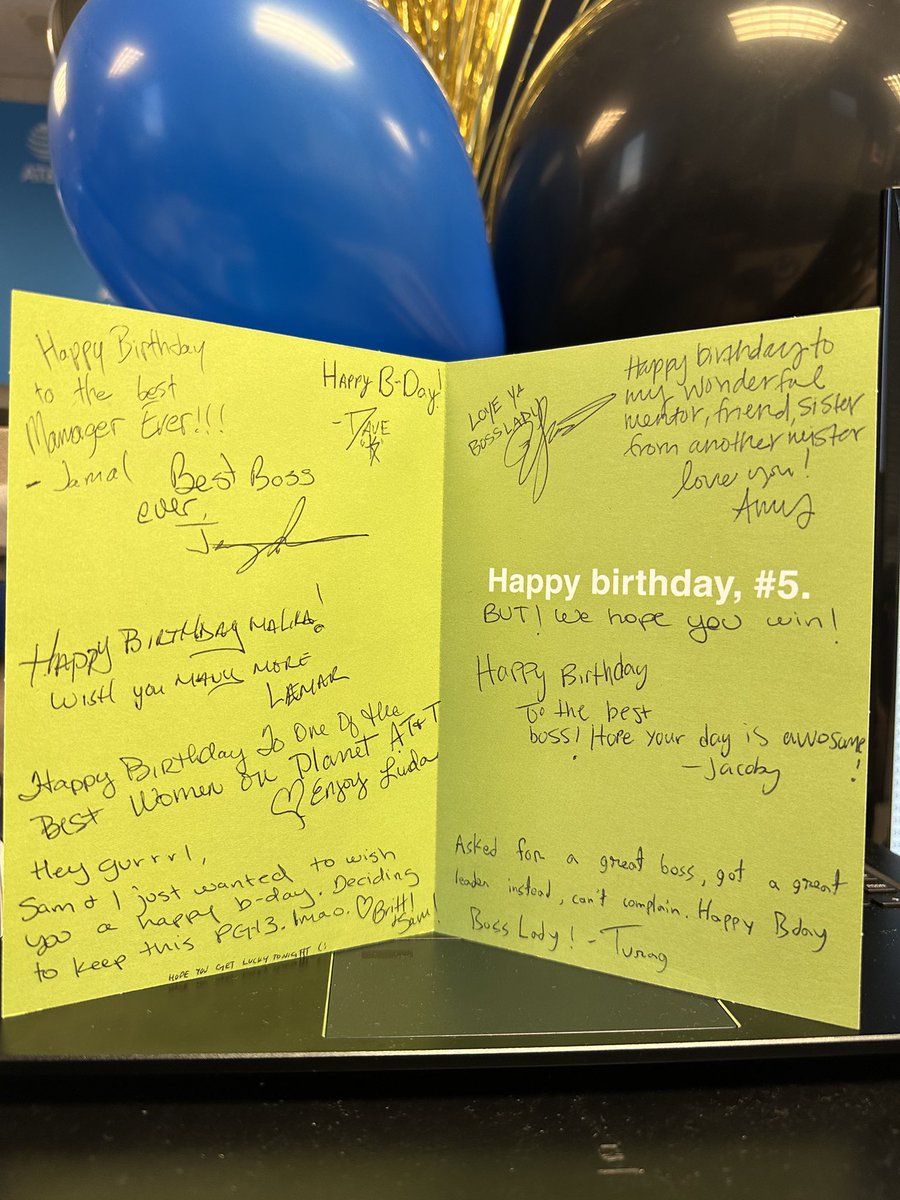 AT&T
Happy Birthday
to the best
Manager Ever!!!
- Jamal
HAPPY B-DAY!
- DAVE
Best Boss
ever,
HAPPY BIRTHDAY MALIKA!
WISH you MANY MORE
LAMAR
Happy Birthday To One Of the
Best Women on Planet AT&T
Enjoy Linda
Hey gurrrl,
Sam & I just wanted to wish
you a happy b-day. Deciding
to keep this PG-13. lmao. ♡Britt!
& Sam!
HOPE YOU GET LUCKY TONIGHT (:
LOVE YA
BOSSLADY
Happy birthday to
my wonderful
mentor, friend, sister
from another myster
love you!
Amy
Happy birthday, #5.
BUT! We hope you win!
Happy Birthday
To the best
boss! Hope your day is awosame!
- Jacoby
Asked for a great boss, got a great
leader instead, can't complain. Happy Bday
Boss Lady! - Turag